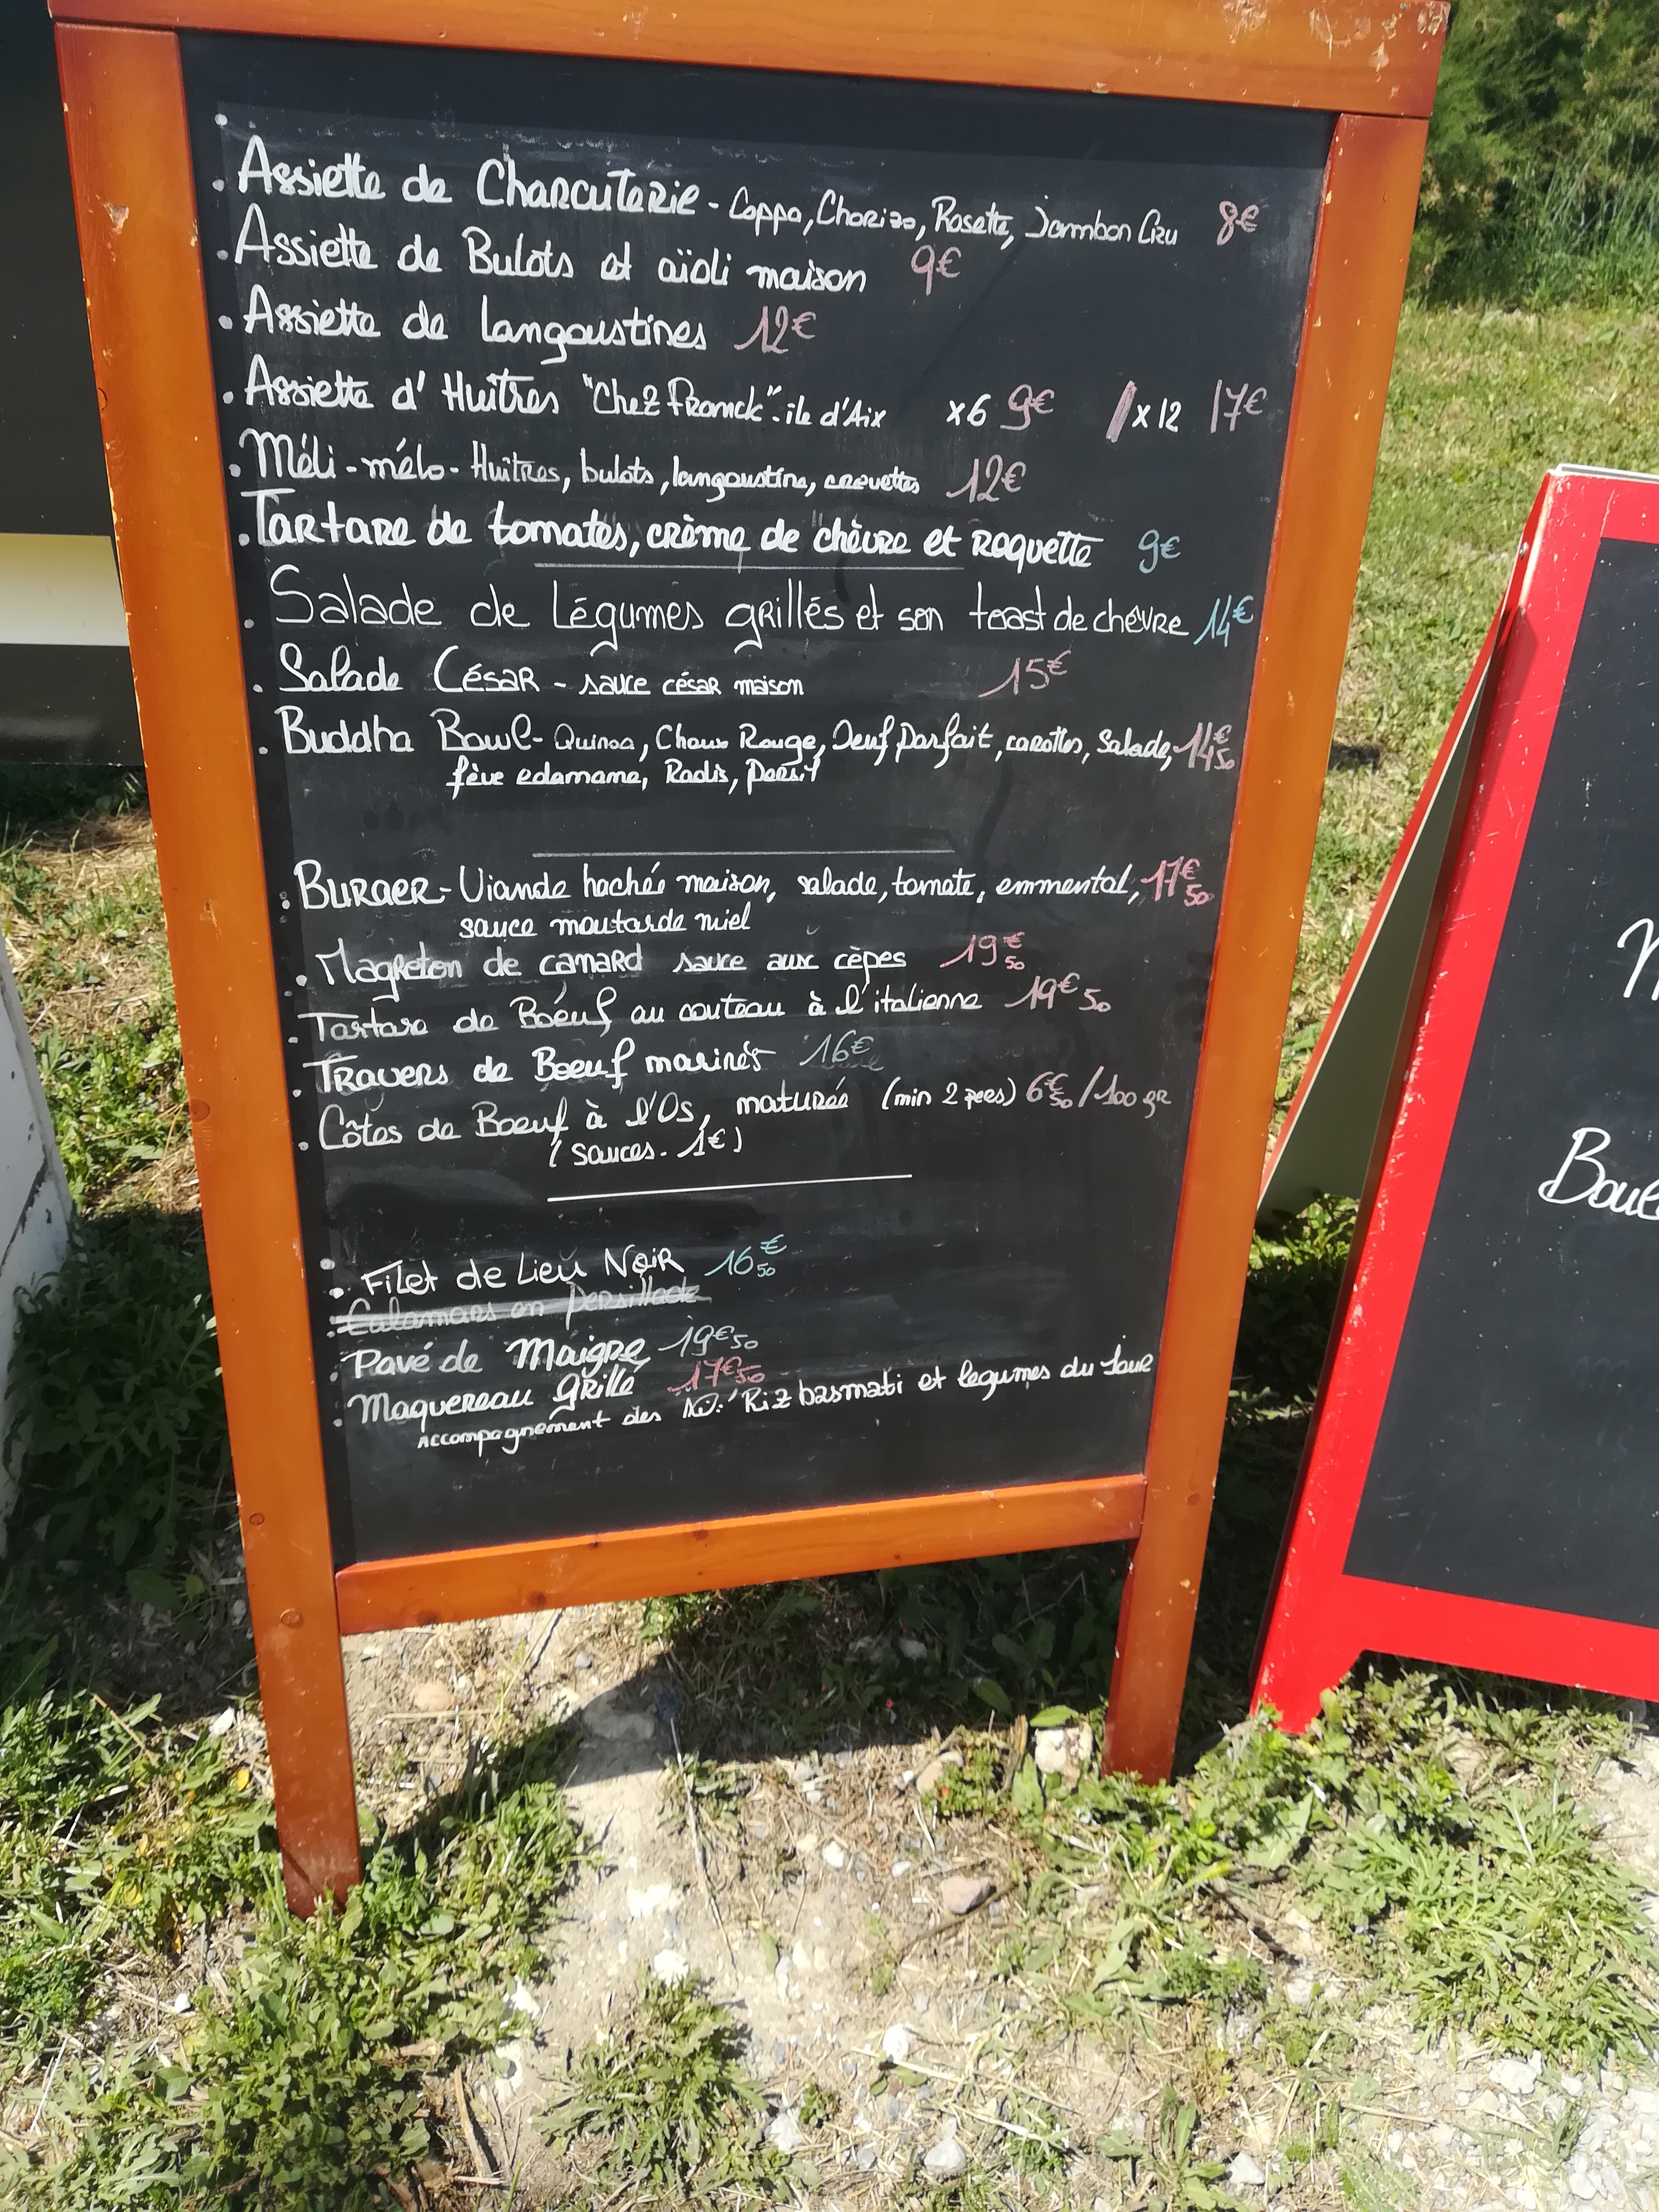 . Assiette de Charcuterie - Coppa, Chorizo, Rosette, Jambon Cru 8€
. Assiette de Bulots et aïoli maison 9€
. Assiette de langoustines 12€
. Assiette d'Huîtres "Chez Franck". ile d'Aix x6 9€ / x12 17€
. Méli-mélo - Huîtres, bulots, langoustine, crevettes 12€
. Tartare de tomates, crème de chèvre et roquette 9€
. Salade de Légumes grillés et son toast de chèvre 14€
. Salade César - sauce césar maison 15€
. Buddha Bowl - Quinoa, Choux Rouge, Oeuf parfait, carottes, Salade, 14€50
fève edamame, Radis, persil
. Burger - Viande hachée maison, salade, tomate, emmental, 17€50
sauce moutarde miel
. Magreton de canard sauce aux cèpes 19€50
. Tartare de Boeuf au couteau à l'italienne 19€50
. Travers de Boeuf marinés 16€
. Côtes de Boeuf à l'Os, maturée (min 2 pers) 6€50/100gr
(sauces. 1€)
. Filet de Lieu Noir 16€50
. Calamars en persillade
. Pavé de Maigre 19€50
. Maquereau grillé 17€50
Accompagnement des Riz basmati et legumes du Jour
Boul